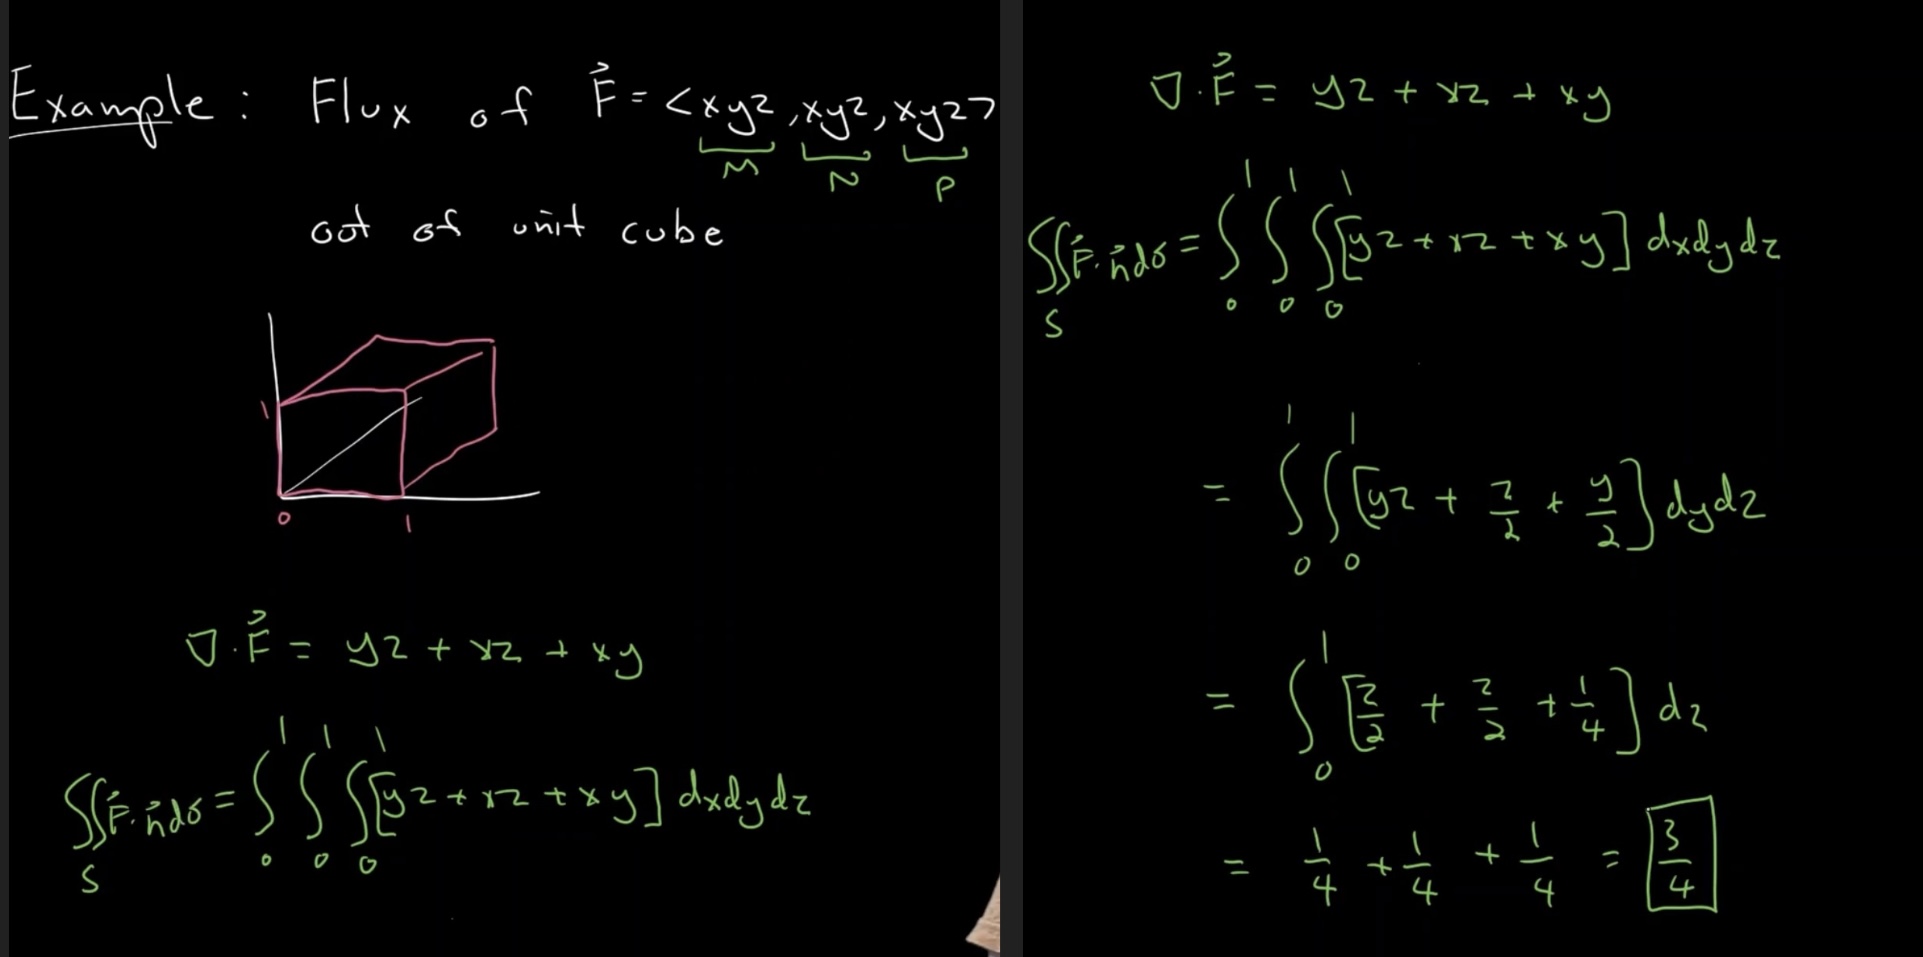 Example: Flux of F⃗ = <xyz, xyz, xyz>
M N P
out of unit cube
1
0 1
∇·F⃗ = yz + xz + xy
∬_S F⃗·n⃗dσ = ∫₀¹ ∫₀¹ ∫₀¹ [yz + xz + xy] dxdydz
∇·F⃗ = yz + xz + xy
∬_S F⃗·n⃗dσ = ∫₀¹ ∫₀¹ ∫₀¹ [yz + xz + xy] dxdydz
= ∫₀¹ ∫₀¹ [yz + z/2 + y/2] dydz
= ∫₀¹ [z/2 + z/2 + 1/4] dz
= 1/4 + 1/4 + 1/4 = 3/4